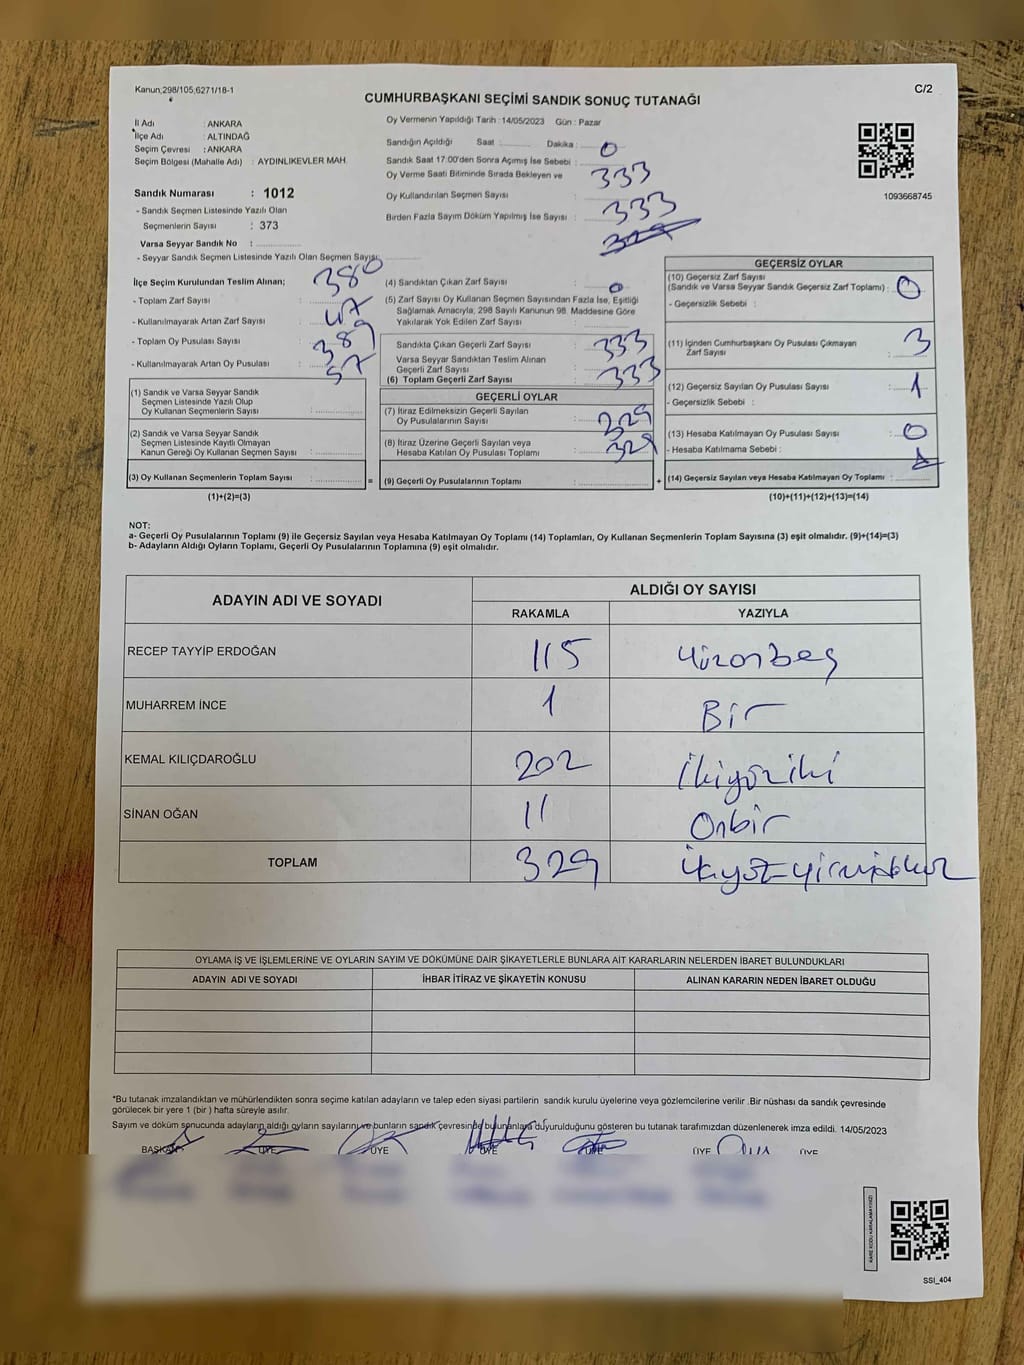 Kanun,298/105,6271/18-1
C/2
CUMHURBAŞKANI SEÇİMİ SANDIK SONUÇ TUTANAĞI
İl Adı : ANKARA
İlçe Adı : ALTINDAĞ
Seçim Çevresi : ANKARA
Seçim Bölgesi (Mahalle Adı) : AYDINLIKEVLER MAH.
Sandık Numarası : 1012
- Sandık Seçmen Listesinde Yazılı Olan
Seçmenlerin Sayısı : 373
Varsa Seyyar Sandık No :
- Seyyar Sandık Seçmen Listesinde Yazılı Olan Seçmen Sayısı:
Oy Vermenin Yapıldığı Tarih :14/05/2023 Gün : Pazar
Sandığın Açıldığı Saat : Dakika :
Sandık Saat 17:00'den Sonra Açımış İse Sebebi : 0
Oy Verme Saati Bitiminde Sırada Bekleyen ve
Oy Kullandırılan Seçmen Sayısı : 333
Birden Fazla Sayım Döküm Yapılmış İse Sayısı : 333
329
1093668745
İlçe Seçim Kurulundan Teslim Alınan;
- Toplam Zarf Sayısı : 380
- Kullanılmayarak Artan Zarf Sayısı : 47
- Toplam Oy Pusulası Sayısı : 389
- Kullanılmayarak Artan Oy Pusulası : 57
(1) Sandık ve Varsa Seyyar Sandık
Seçmen Listesinde Yazılı Olup
Oy Kullanan Seçmenlerin Sayısı :
(2) Sandık ve Varsa Seyyar Sandık
Seçmen Listesinde Kayıtlı Olmayan
Kanun Gereği Oy Kullanan Seçmen Sayısı :
(3) Oy Kullanan Seçmenlerin Toplam Sayısı :
(1)+(2)=(3)
(4) Sandıktan Çıkan Zarf Sayısı :
(5) Zarf Sayısı Oy Kullanan Seçmen Sayısından Fazla İse, Eşitliği
Sağlamak Amacıyla, 298 Sayılı Kanunun 98. Maddesine Göre
Yakılarak Yok Edilen Zarf Sayısı : 0
Sandıkta Çıkan Geçerli Zarf Sayısı : 333
Varsa Seyyar Sandıktan Teslim Alınan
Geçerli Zarf Sayısı :
(6) Toplam Geçerli Zarf Sayısı : 333
GEÇERLİ OYLAR
(7) İtiraz Edilmeksizin Geçerli Sayılan
Oy Pusulalarının Sayısı : 329
(8) İtiraz Üzerine Geçerli Sayılan veya
Hesaba Katılan Oy Pusulası Toplamı : 329
= (9) Geçerli Oy Pusulalarının Toplamı :
GEÇERSİZ OYLAR
(10) Geçersiz Zarf Sayısı
(Sandık ve Varsa Seyyar Sandık Geçersiz Zarf Toplamı) : 0
- Geçersizlik Sebebi :
(11) İçinden Cumhurbaşkanı Oy Pusulası Çıkmayan
Zarf Sayısı : 3
(12) Geçersiz Sayılan Oy Pusulası Sayısı : 1
- Geçersizlik Sebebi :
(13) Hesaba Katılmayan Oy Pusulası Sayısı : 0
- Hesaba Katılmama Sebebi :
+ (14) Geçersiz Sayılan veya Hesaba Katılmayan Oy Toplamı :
(10)+(11)+(12)+(13)=(14)
NOT:
a- Geçerli Oy Pusulalarının Toplamı (9) ile Geçersiz Sayılan veya Hesaba Katılmayan Oy Toplamı (14) Toplamları, Oy Kullanan Seçmenlerin Toplam Sayısına (3) eşit olmalıdır. (9)+(14)=(3)
b- Adayların Aldığı Oyların Toplamı, Geçerli Oy Pusulalarının Toplamına (9) eşit olmalıdır.
ADAYIN ADI VE SOYADI
ALDIĞI OY SAYISI
RAKAMLA YAZIYLA
RECEP TAYYİP ERDOĞAN 115 Yüzonbeş
MUHARREM İNCE 1 Bir
KEMAL KILIÇDAROĞLU 202 İkiyüziki
SİNAN OĞAN 11 Onbir
TOPLAM 329
OYLAMA İŞ VE İŞLEMLERİNE VE OYLARIN SAYIM VE DÖKÜMÜNE DAİR ŞİKAYETLERLE BUNLARA AİT KARARLARIN NELERDEN İBARET BULUNDUKLARI
ADAYIN ADI VE SOYADI İHBAR İTİRAZ VE ŞİKAYETİN KONUSU ALINAN KARARIN NEDEN İBARET OLDUĞU
*Bu tutanak imzalandıktan ve mühürlendikten sonra seçime katılan adayların ve talep eden siyasi partilerin sandık kurulu üyelerine veya gözlemcilerine verilir .Bir nüshası da sandık çevresinde
görülecek bir yere 1 (bir ) hafta süreyle asılır.
Sayım ve döküm sonucunda adayların aldığı oyların sayılarını ve bunların sandık çevresinde bulunanlara duyurulduğunu gösteren bu tutanak tarafımızdan düzenlenerek imza edildi. 14/05/2023
BAŞKAN ÜYE ÜYE ÜYE ÜYE ÜYE ÜYE
KARE KODU KARALAMAYINIZ!
SSI_404